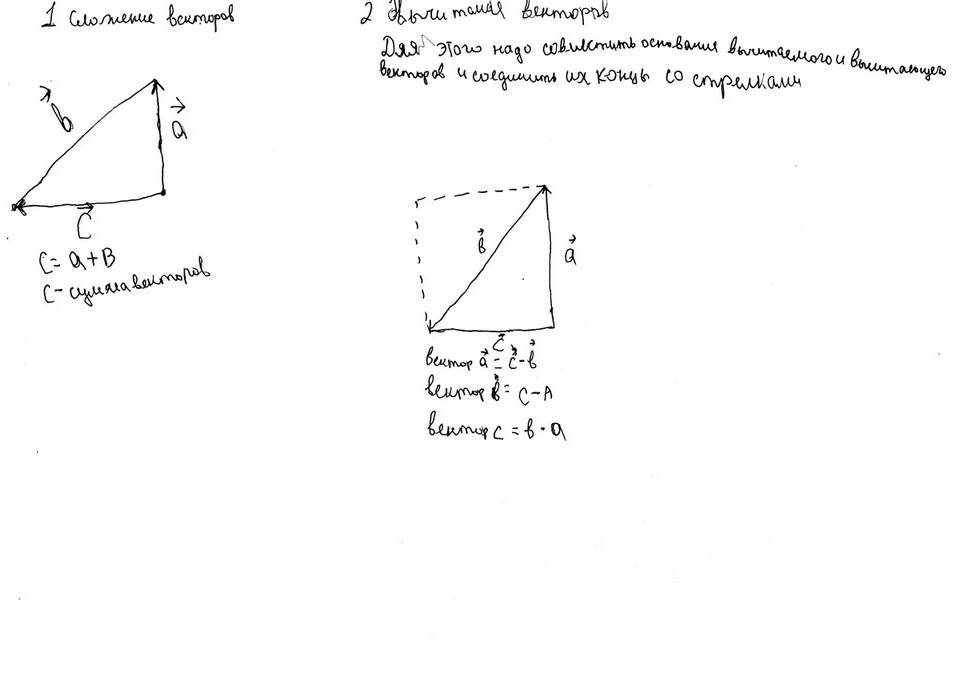 1 сложение векторов
b
a
C
C = a + B
C - сумма векторов
2 Вычитания векторов
Для этого надо совместить основания вычитаемого и вычитающего
векторов и соединить их концы со стрелками
b
a
C
вектор a = c - b
вектор b = C - A
вектор C = b - a